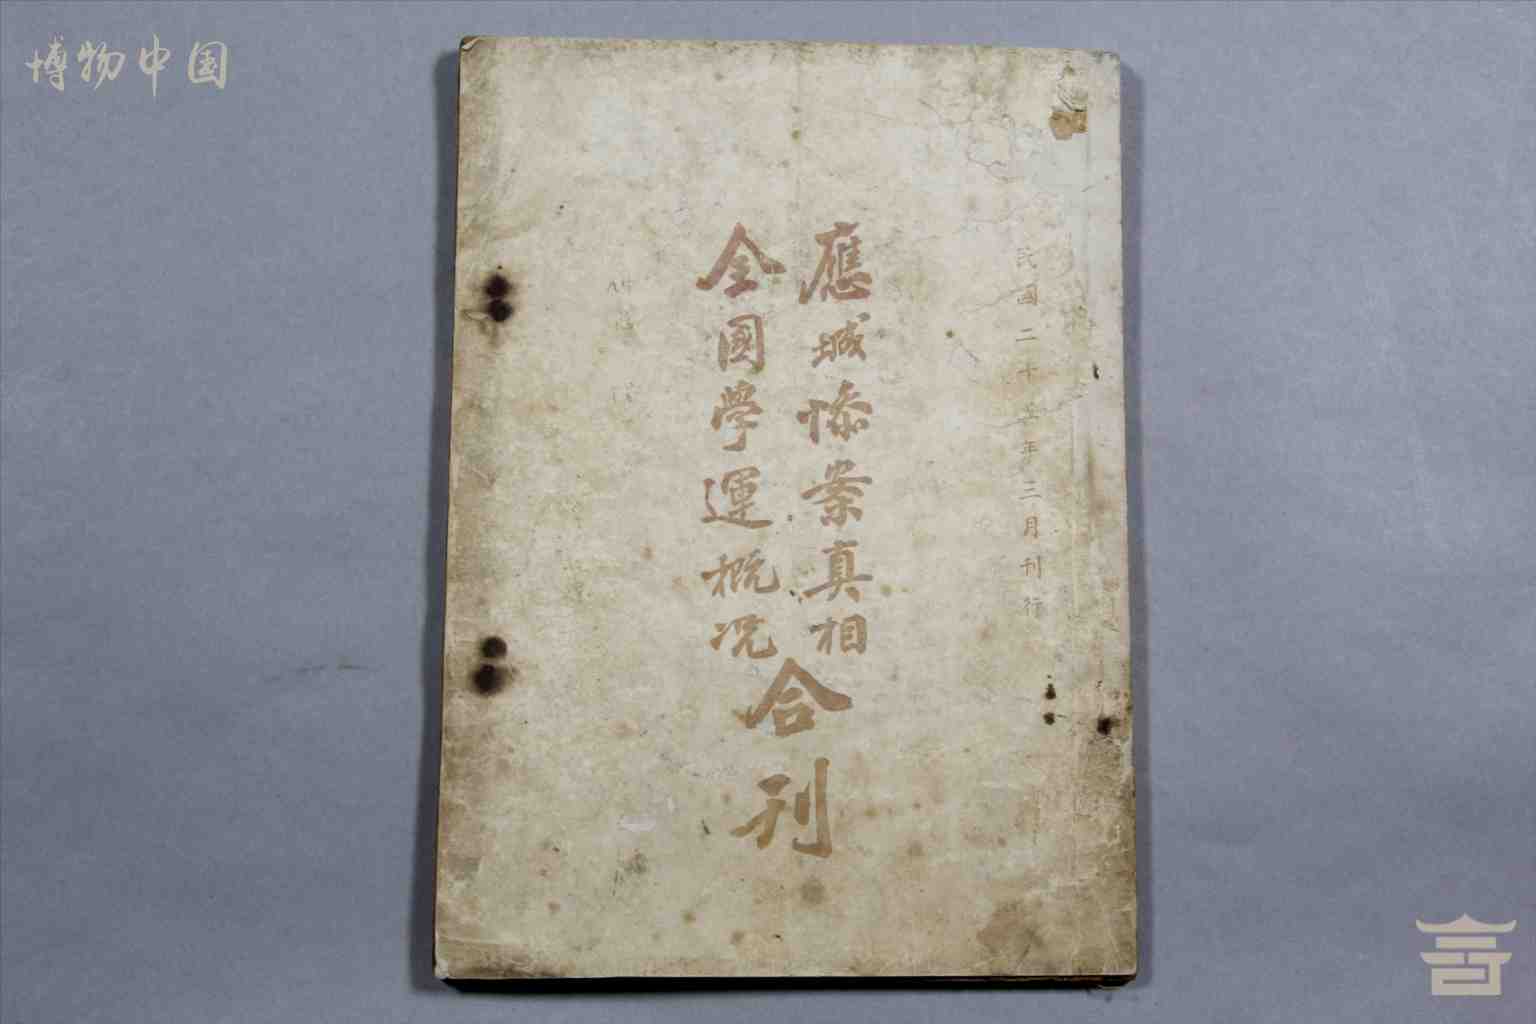 博物中国
民國二十五年三月刊行
應城慘案真相
全國學運概况
合刊